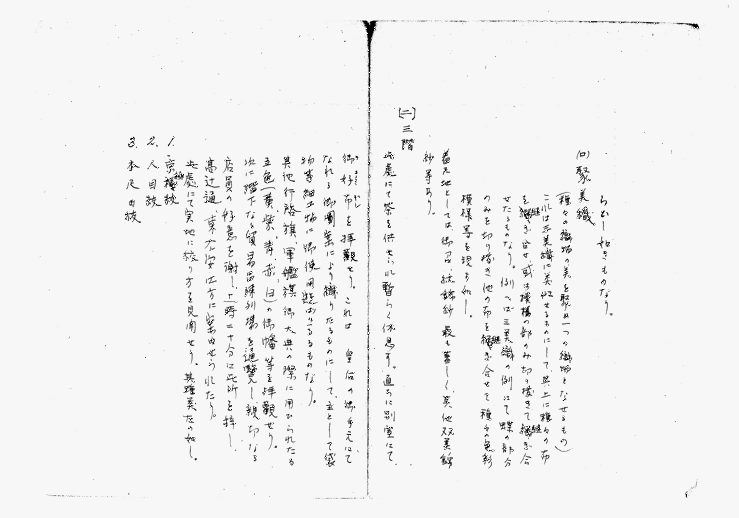 らむし如きものなり。
(ロ)聚美織
(種々の織物の美を聚め一つの織物となせるもの)
これは三美織に美似せるものにして其上に種々の布
を継ぎ合せ或は模様の部のみ切り抜きて継ぎ合
せたるものなり。例へば三美織の例にて蝶の部分
のみを切り抜き他の布を継ぎ合せて種々の色彩
模様等を現す如し。
着尺地としては御召、絽、縮、紗 最も著しく、其他双美錦
紗等あり。
[二]三階
此處にて茶を供せられ暫らく休息す。直ちに別室にて
御好布を拝観せり。これは 皇后の御手元にて
なれる御図案により織りたるものにして、主として袋
物等細工物に御使用遊ばさるるものなり。
其他行啓旗、軍艦旗、御大典の際に用ひられたる
五色(黄、紫、青、赤、白)の御幡等を拝観せり。
次に階下なる貿易品陳列場を通覧し親切なる
店員の好意を謝し、十一時二十分に此所を辞し、
高辻通、東大宮西方に案内せられたり。
此處にて実地に絞り方を見聞せり。其種類左の如し。
1. 京極絞
2. 人目絞
3. 本疋田絞